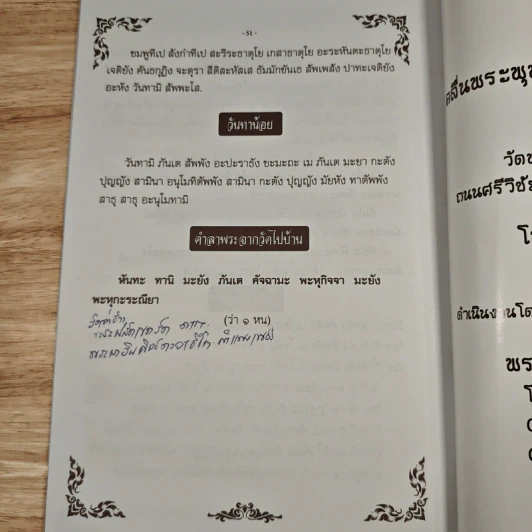 - 51 -
ชมพูทีเป ลังกาทีเป สะรีระธาตุโย เกสาธาตุโย อะระหันตะธาตุโย
เจติยัง คันธกุฏิง จะตุรา สีติสะหัสเส ธัมมักขันเธ สัพเพสัง ปาทะเจติยัง
อะหัง วันทามิ สัพพะโส.
วันทาน้อย
วันทามิ ภันเต สัพพัง อะปะราธัง ขะมะถะ เม ภันเต มะยา กะตัง
ปุญญัง สามินา อนุโมทิตัพพัง สามินา กะตัง ปุญญัง มัยหัง ทาตัพพัง
สาธุ สาธุ อะนุโมทามิ
คำลาพระจากวัดไปบ้าน
หันทะ ทานิ มะยัง ภันเต คัจฉามะ พะหุกิจจา มะยัง
พะหุกะระณียา
(ว่า ๑ หน)
คลื่นพระพุ
วัด
ถนนศรีวิชั
โ
ดำเนินงานโด
พร
โ